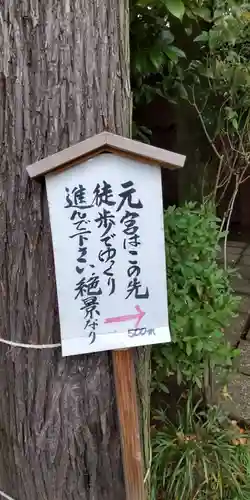 元宮はこの先
徒歩でゆくり
進んで下さい絶景なり
500m